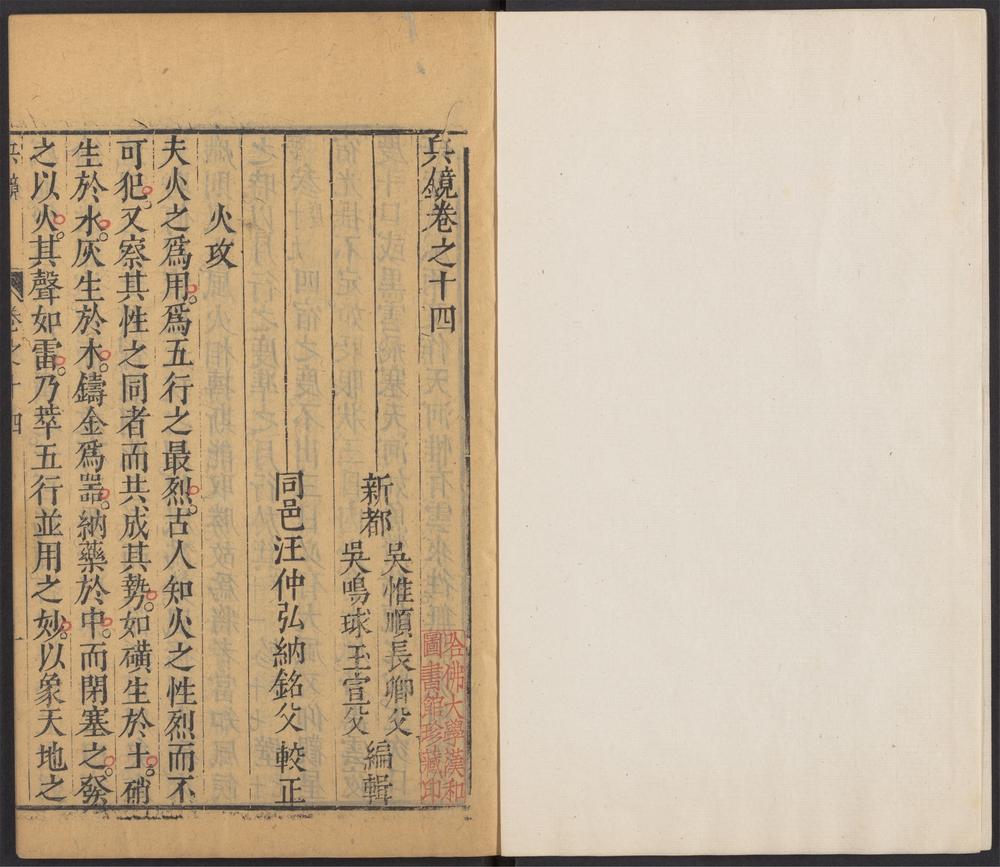 兵鏡卷之十四
新都
吳惟順長卿父
吳鳴球玉宣父
編輯
同邑汪仲弘納銘父較正
火攻
夫火之爲用。爲五行之最烈。古人知火之性烈而不
可犯。又察其性之同者而共成其勢。如磺生於土。硝
生於水。灰生於木。鑄金爲器。納藥於中。而閉塞之。發
之以火。其聲如雷。乃萃五行並用之妙。以象天地之
兵鏡
卷之十四
一
哈佛大學漢和
圖書館珍藏印